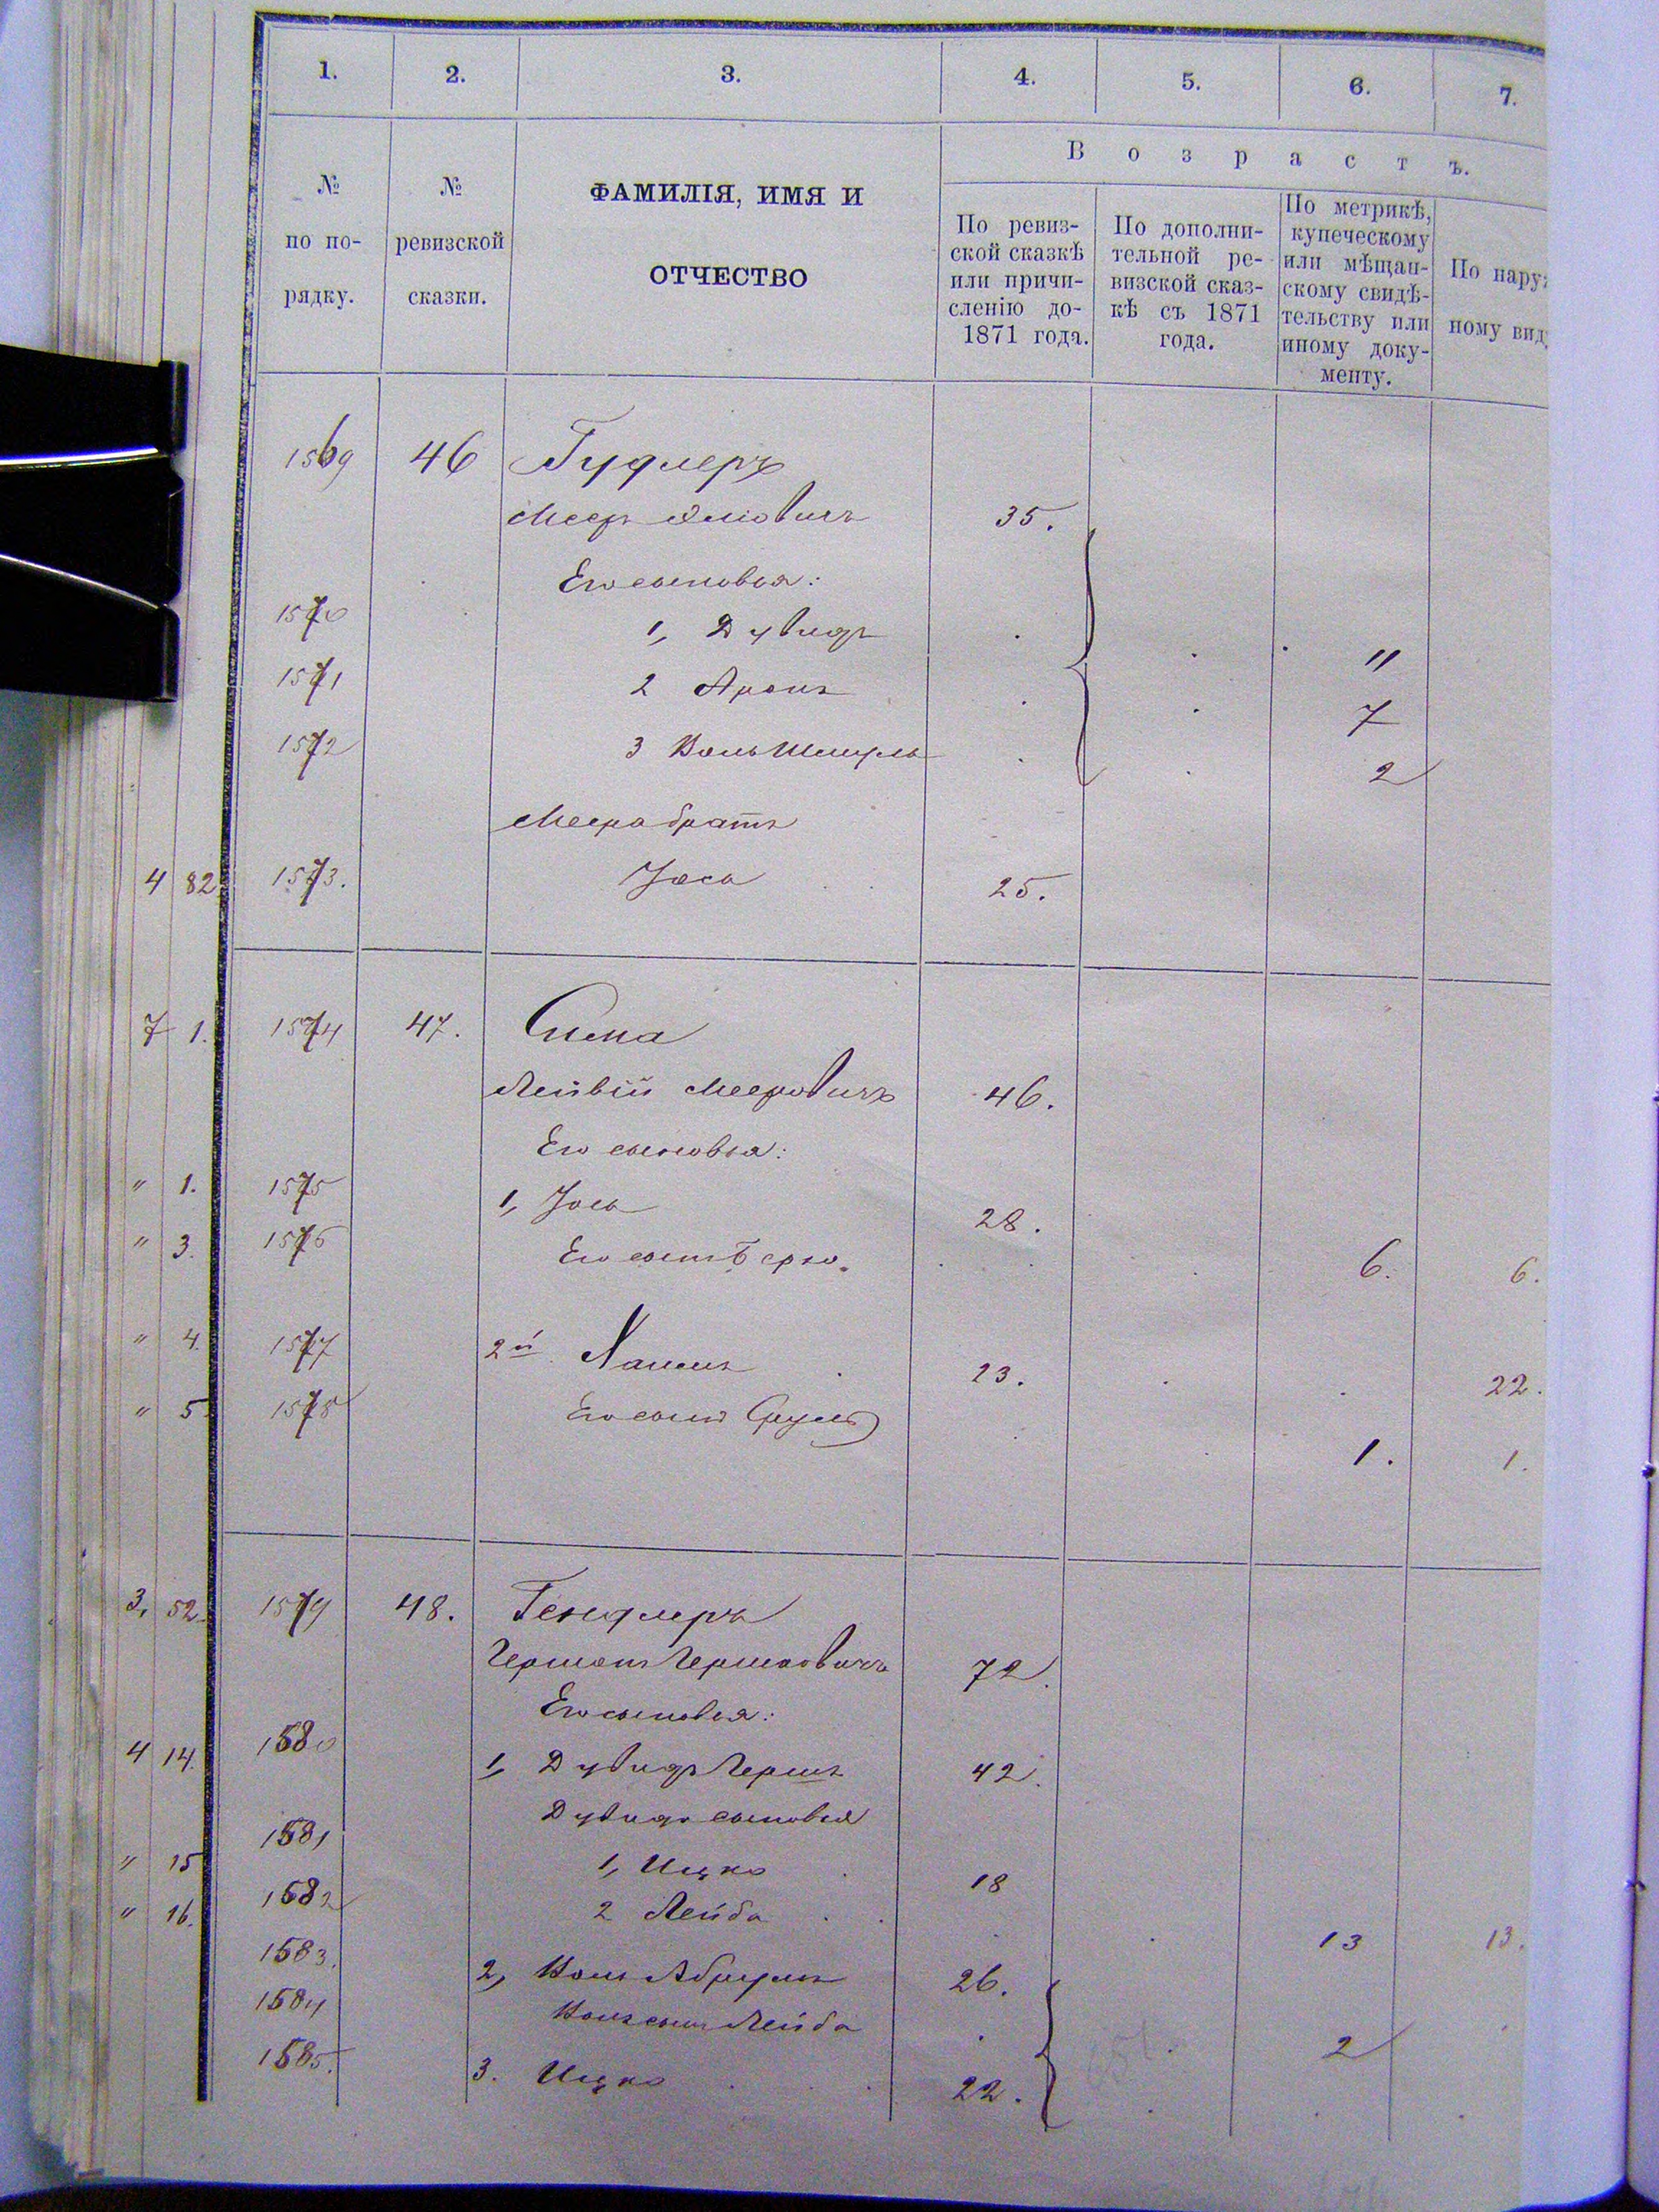 1. 2. 3. 4. 5. 6. 7.
Возрастъ.
№ по по-
рядку.
№
ревизской
сказки.
ФАМИЛІЯ, ИМЯ И
ОТЧЕСТВО
По ревиз-
ской сказкѣ
или причи-
сленію до-
1871 года.
По дополни-
тельной ре-
визской сказ-
кѣ съ 1871
года.
По метрикѣ,
купеческому
или мѣщан-
скому свидѣ-
тельству или
иному доку-
менту.
По нару
ному вид
1569 46 Гудлеръ
Меер 35.
Его сыновья:
1570 1, Дувидъ 11
1571 2 Аронъ 7
1572 3 Шмуль 2
Меера братъ
4 82 1573. Іось 25.
7 1. 1574 47. Сима
Лейвій Мееровичъ 46.
Его сыновья:
" 1. 1575 1, Іось 28.
" 3. 1576 Его сынъ Берко. 6. 6.
" 4. 1577 2й Хаимъ 23. 22.
" 5. 1578 Его сынъ Сруль 1. 1.
3, 52. 1579 48. Гендлеръ
Гершонъ Гершковичъ 72.
Его сыновья:
4 14. 1580 1, Дувидъ Гершъ 42.
Дувида сыновья
" 15 1581 1, Ицко 18
" 16. 1582 2 Лейба 13 13.
1583. 2, Абрумъ 26.
1584 сынъ Лейба 2
1585. 3. Ицко 22.